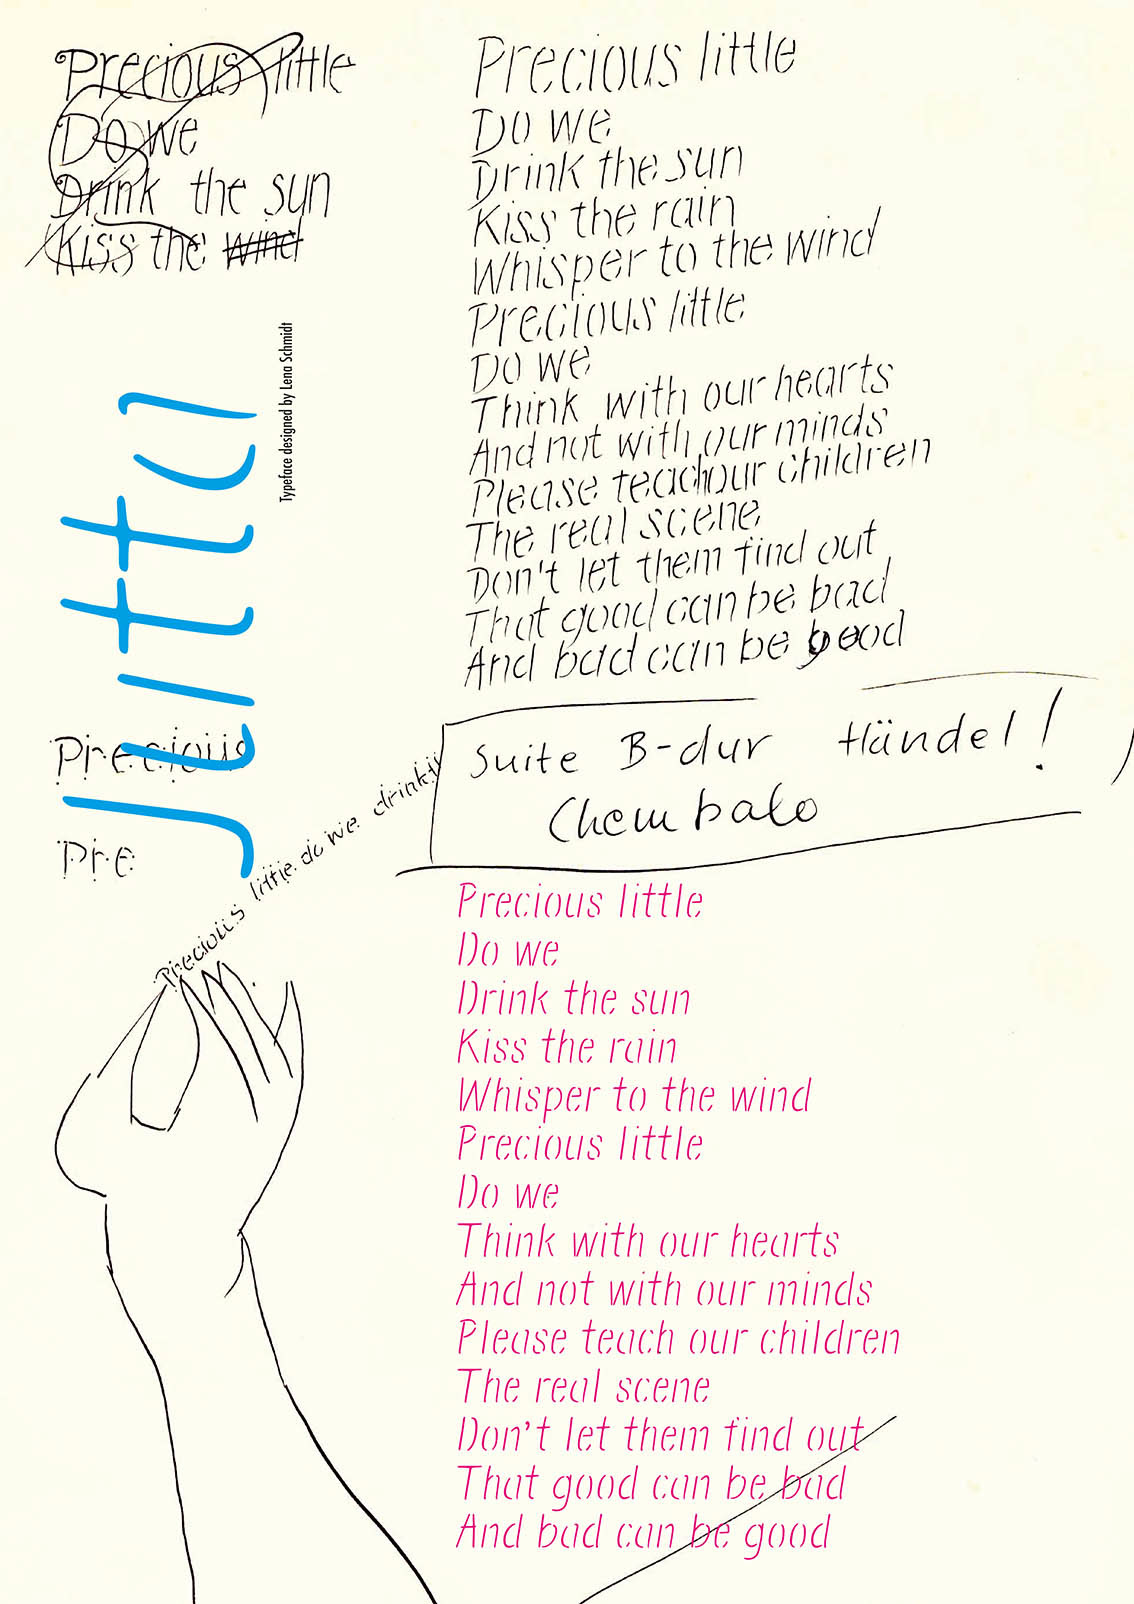 Precious little
Do we
Drink the sun
Kiss the wind
Jutta
Typeface designed by Lena Schmidt
Precious
Pre
Precious little do we drink
Precious little
Do we
Drink the sun
Kiss the rain
Whisper to the wind
Precious little
Do we
Think with our hearts
And not with our minds
Please teach our children
The real scene
Don't let them find out
That good can be bad
And bad can be good
Suite B-dur Händel!
Chembalo
Precious little
Do we
Drink the sun
Kiss the rain
Whisper to the wind
Precious little
Do we
Think with our hearts
And not with our minds
Please teach our children
The real scene
Don't let them find out
That good can be bad
And bad can be good